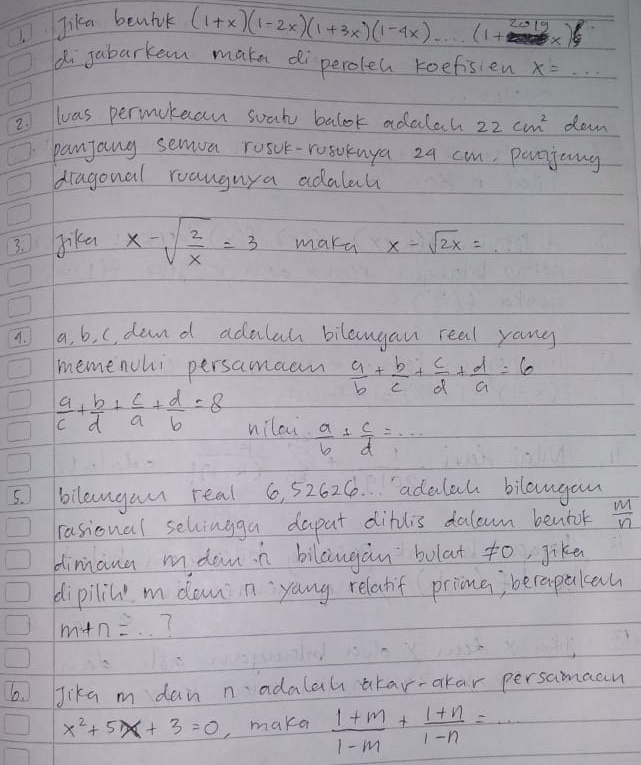 1. Jika bentuk (1+x)(1-2x)(1+3x)(1-4x).... (1+2019x)
di jabarkan maka di peroleh koefisien x = ...
2. luas permukaan suatu balok adalah 22 cm² dan
panjang semua rusuk-rusuknya 24 cm, panjang
diagonal ruangnya adalah
3. Jika x - √(2/x) = 3 maka x - √2x = ..
4. a, b, c, dan d adalah bilangan real yang
memenuhi persamaan a/b + b/c + c/d + d/a = 6
a/c + b/d + c/a + d/b = 8
nilai a/b + c/d = ...
5. bilangan real 6,52626... adalah bilangan
rasional sehingga dapat ditulis dalam bentuk m/n
dimana m dan n bilangan bulat ≠0, jika
dipilih m dan n yang relatif prima, berapakah
m+n = ..?
6. Jika m dan n adalah akar-akar persamaan
x² + 5x + 3 = 0, maka (1+m)/(1-m) + (1+n)/(1-n) = ...